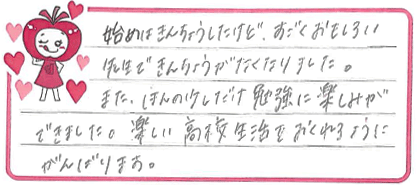 始めはきんちょうしたけど、すごくおもしろい
先生できんちょうがなくなりました。
また、ほんの少しだけ勉強に楽しみが
できました。楽しい高校生活をおくれるように
がんばります。